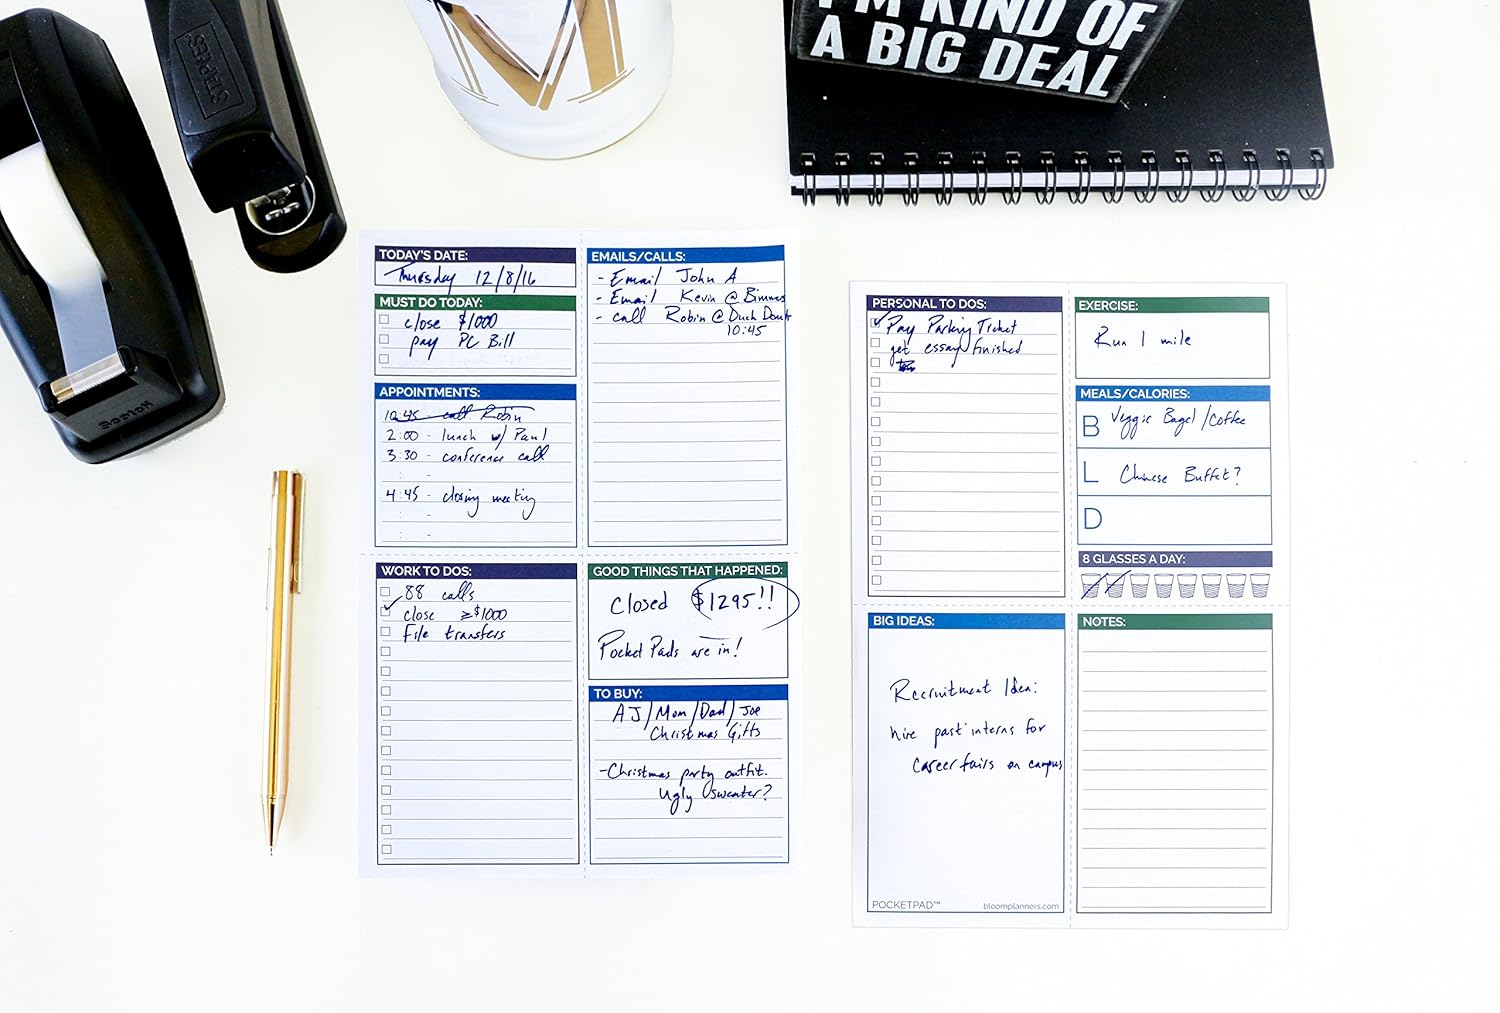 STAPLES
I'M KIND OF
A BIG DEAL
Scotch
TODAY'S DATE:
Thursday 12/8/16
MUST DO TODAY:
close $1000
pay PC Bill
APPOINTMENTS:
10:45 call Robin
2:00 - lunch w/ Paul
3:30 - conference call
: -
4:45 - closing meeting
: -
: -
EMAILS/CALLS:
- Email John A
- Email Kevin @
- call Robin @ Duck Donut
10:45
WORK TO DOS:
88 calls
close ≥$1000
File transfers
GOOD THINGS THAT HAPPENED:
Closed $1295!!
Pocket Pads are in!
TO BUY:
AJ/Mom/Dad/Joe
Christmas Gifts
- Christmas party outfit.
Ugly sweater?
PERSONAL TO DOS:
Pay Parking Ticket
get essay finished
EXERCISE:
Run 1 mile
MEALS/CALORIES:
B Veggie Bagel/Coffee
L Chinese Buffet?
D
8 GLASSES A DAY:
BIG IDEAS:
Recruitment Idea:
hire past interns for
career fairs on campus
POCKETPAD™
bloomplanners.com
NOTES: